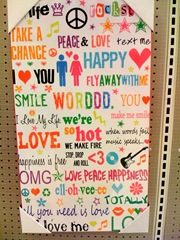 life rocks!
TAKE A CHANCE
PEACE & LOVE text me
HAPPY
I YOU
FLY AWAY WITH ME
SMILE WORDDD. YOU
make me smile
I Love My Life we're so hot
LOVE WE MAKE FIRE
when words fail music speaks
STOP, DROP AND ROLL
happiness is free <3
OMG LOVE PEACE HAPPINESS
ell-oh-vee-ee
TOTALLY
all you need is love
love me